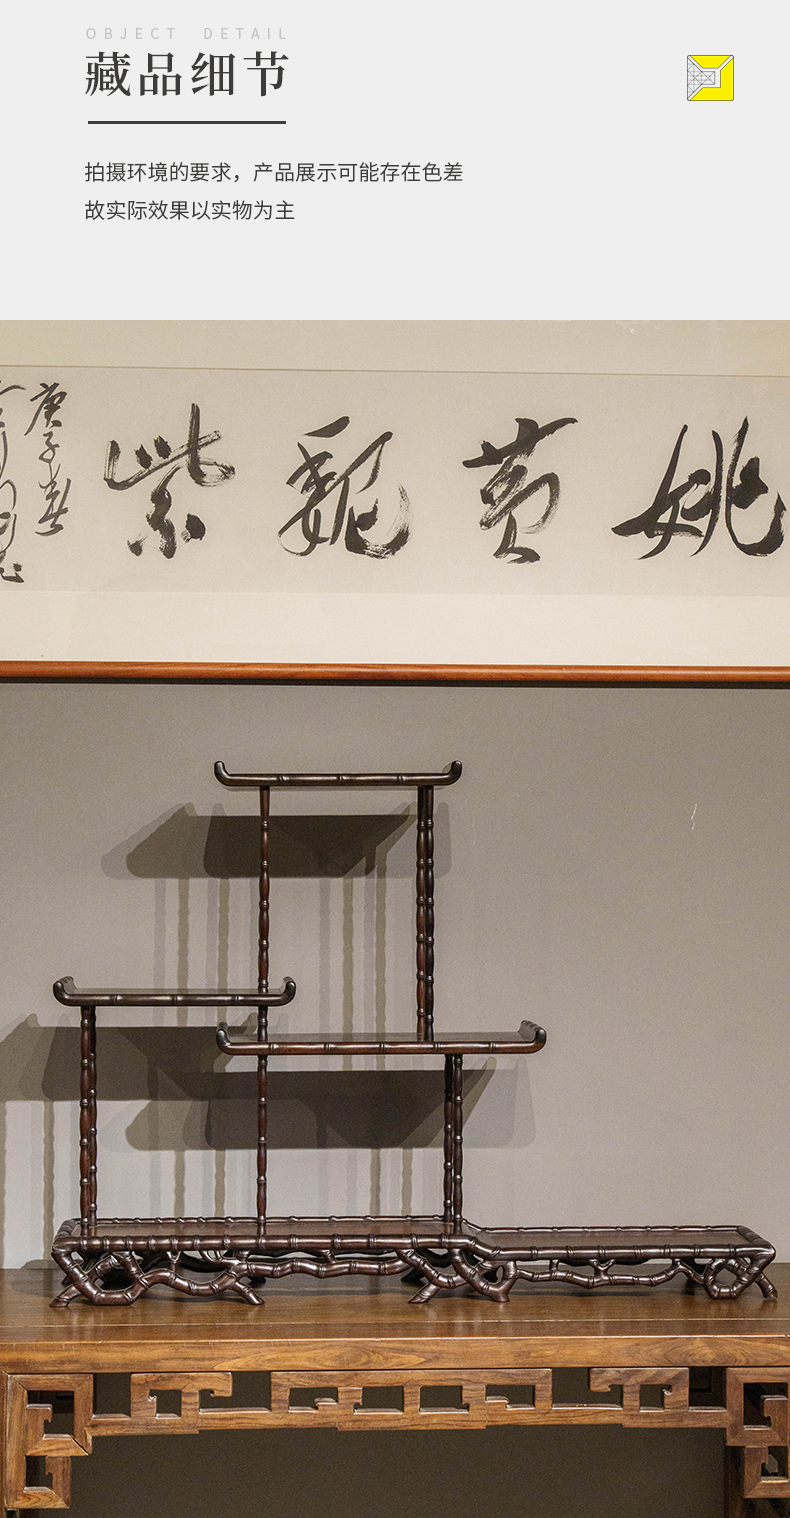 OBJECT DETAIL
藏品细节
拍摄环境的要求，产品展示可能存在色差
故实际效果以实物为主
姚黄魏紫
庚子春